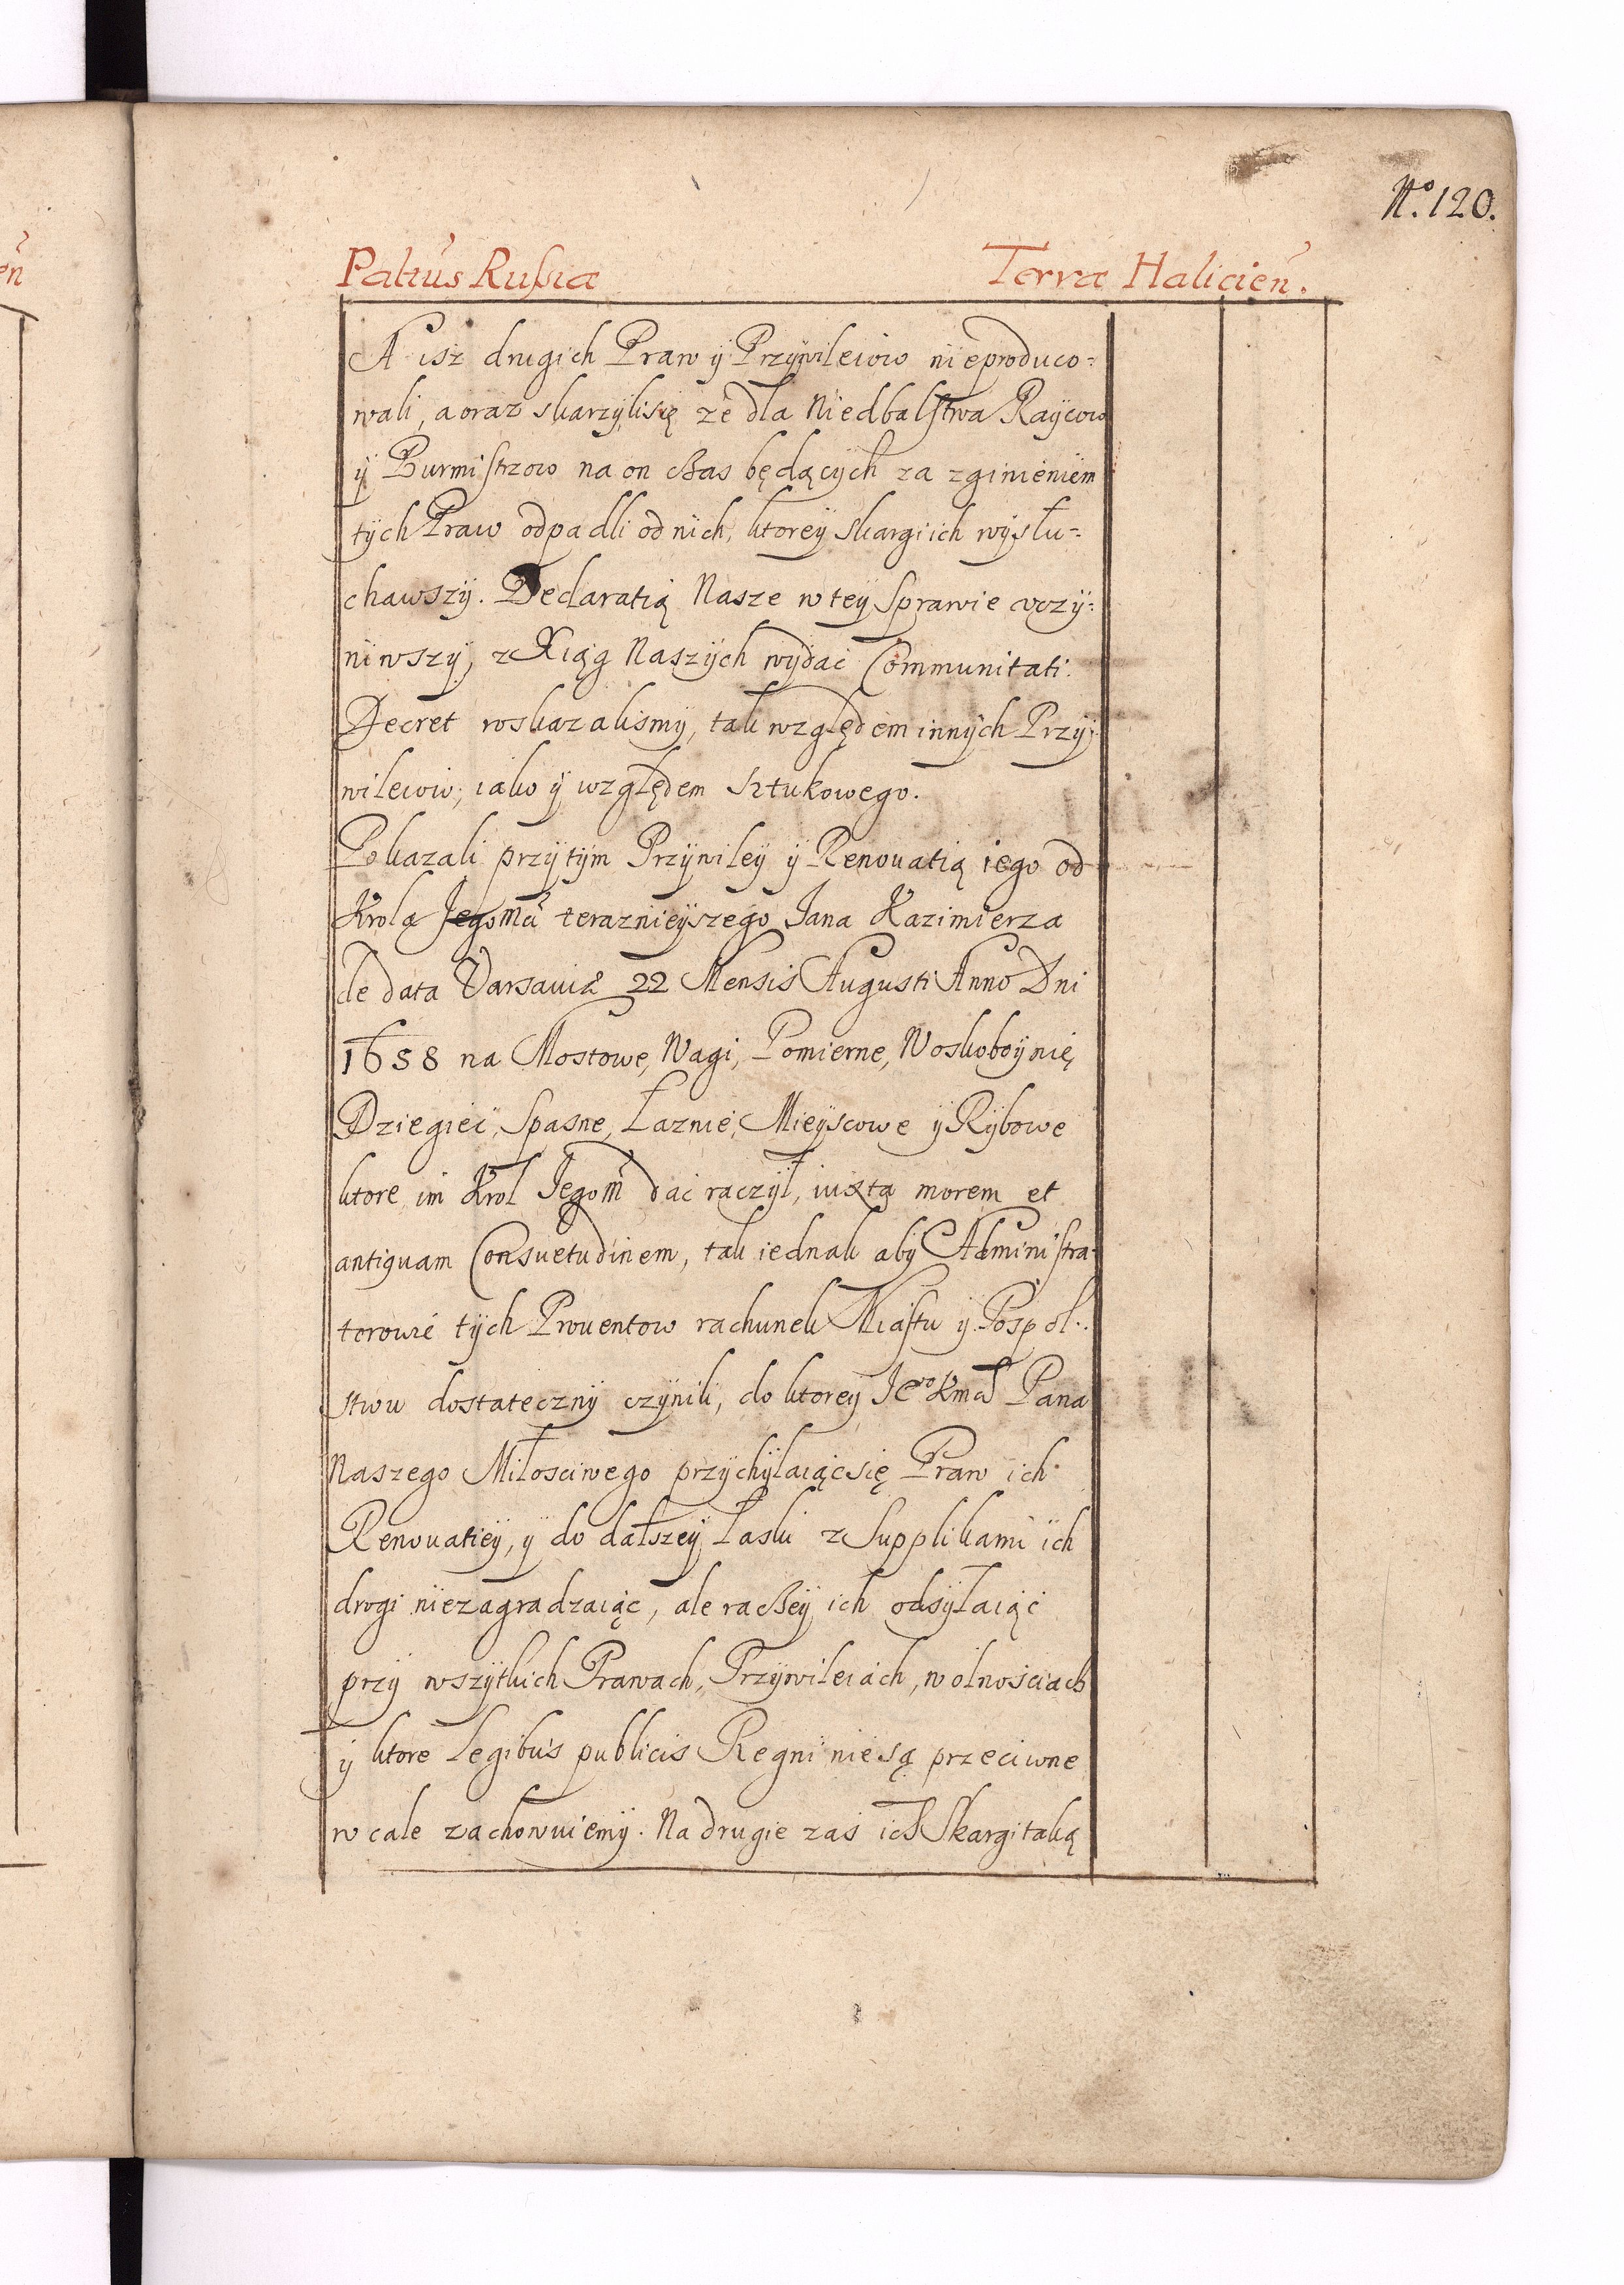 No. 120.
Patus Russiæ Terræ Halicien.
A isz drugich Praw ÿ Przÿwileiow nieproduco=
wali, a oraz skarzÿli się że dla Niedbalstwa Raÿcow
ÿ Burmistrzow na on czas będącÿch za zginieniem
tÿch Praw odpadli od nich, ktoreÿ skargi ich wÿsłu=
chawszÿ. Declaratią Nasze w teÿ Sprawie vczÿ=
niwszÿ, z Xiąg Naszÿch wÿdać Communitati.
Decret roskazalismÿ, tak względem innÿch Przÿ=
wileiow, iako ÿ względem Sztukowego.
Pokazali przÿ tÿm Przÿwileÿ ÿ Renouatią iego od
Krola JegoMci teraznieÿszego Jana Kazimierza
de data Varsauiæ 22 Mensis Augusti Anno Dni
1658 na Mostowe, Wagi, Pomierne, Woskoboÿnię,
Dziegieć, Spasne, Łaznie, Mieÿscowe ÿ Rÿbowe
ktore im Krol Jegom dać raczÿł, iuxta morem et
antiquam Consuetudinem, tak iednak abÿ Administra=
torowie tÿch Prouentow rachunek Miastu ÿ Pospol..
stwu dostatecznÿ czÿnili, do ktoreÿ Je° Kmci Pana
Naszego Miłosciwego przÿchÿlaiąc się Praw ich
Renouatieÿ, ÿ do dalszeÿ Łaski z Supplikami ich
drogi niezagradzaiąc, ale raczeÿ ich odsÿłaiąc
przÿ wszÿtkich Prawach, Przÿwileiach, wolnościach
ÿ ktore Legibus publicis Regni nie są przeciwne
w cale zachowuiemÿ. Na drugie zaś ich Skargi taką